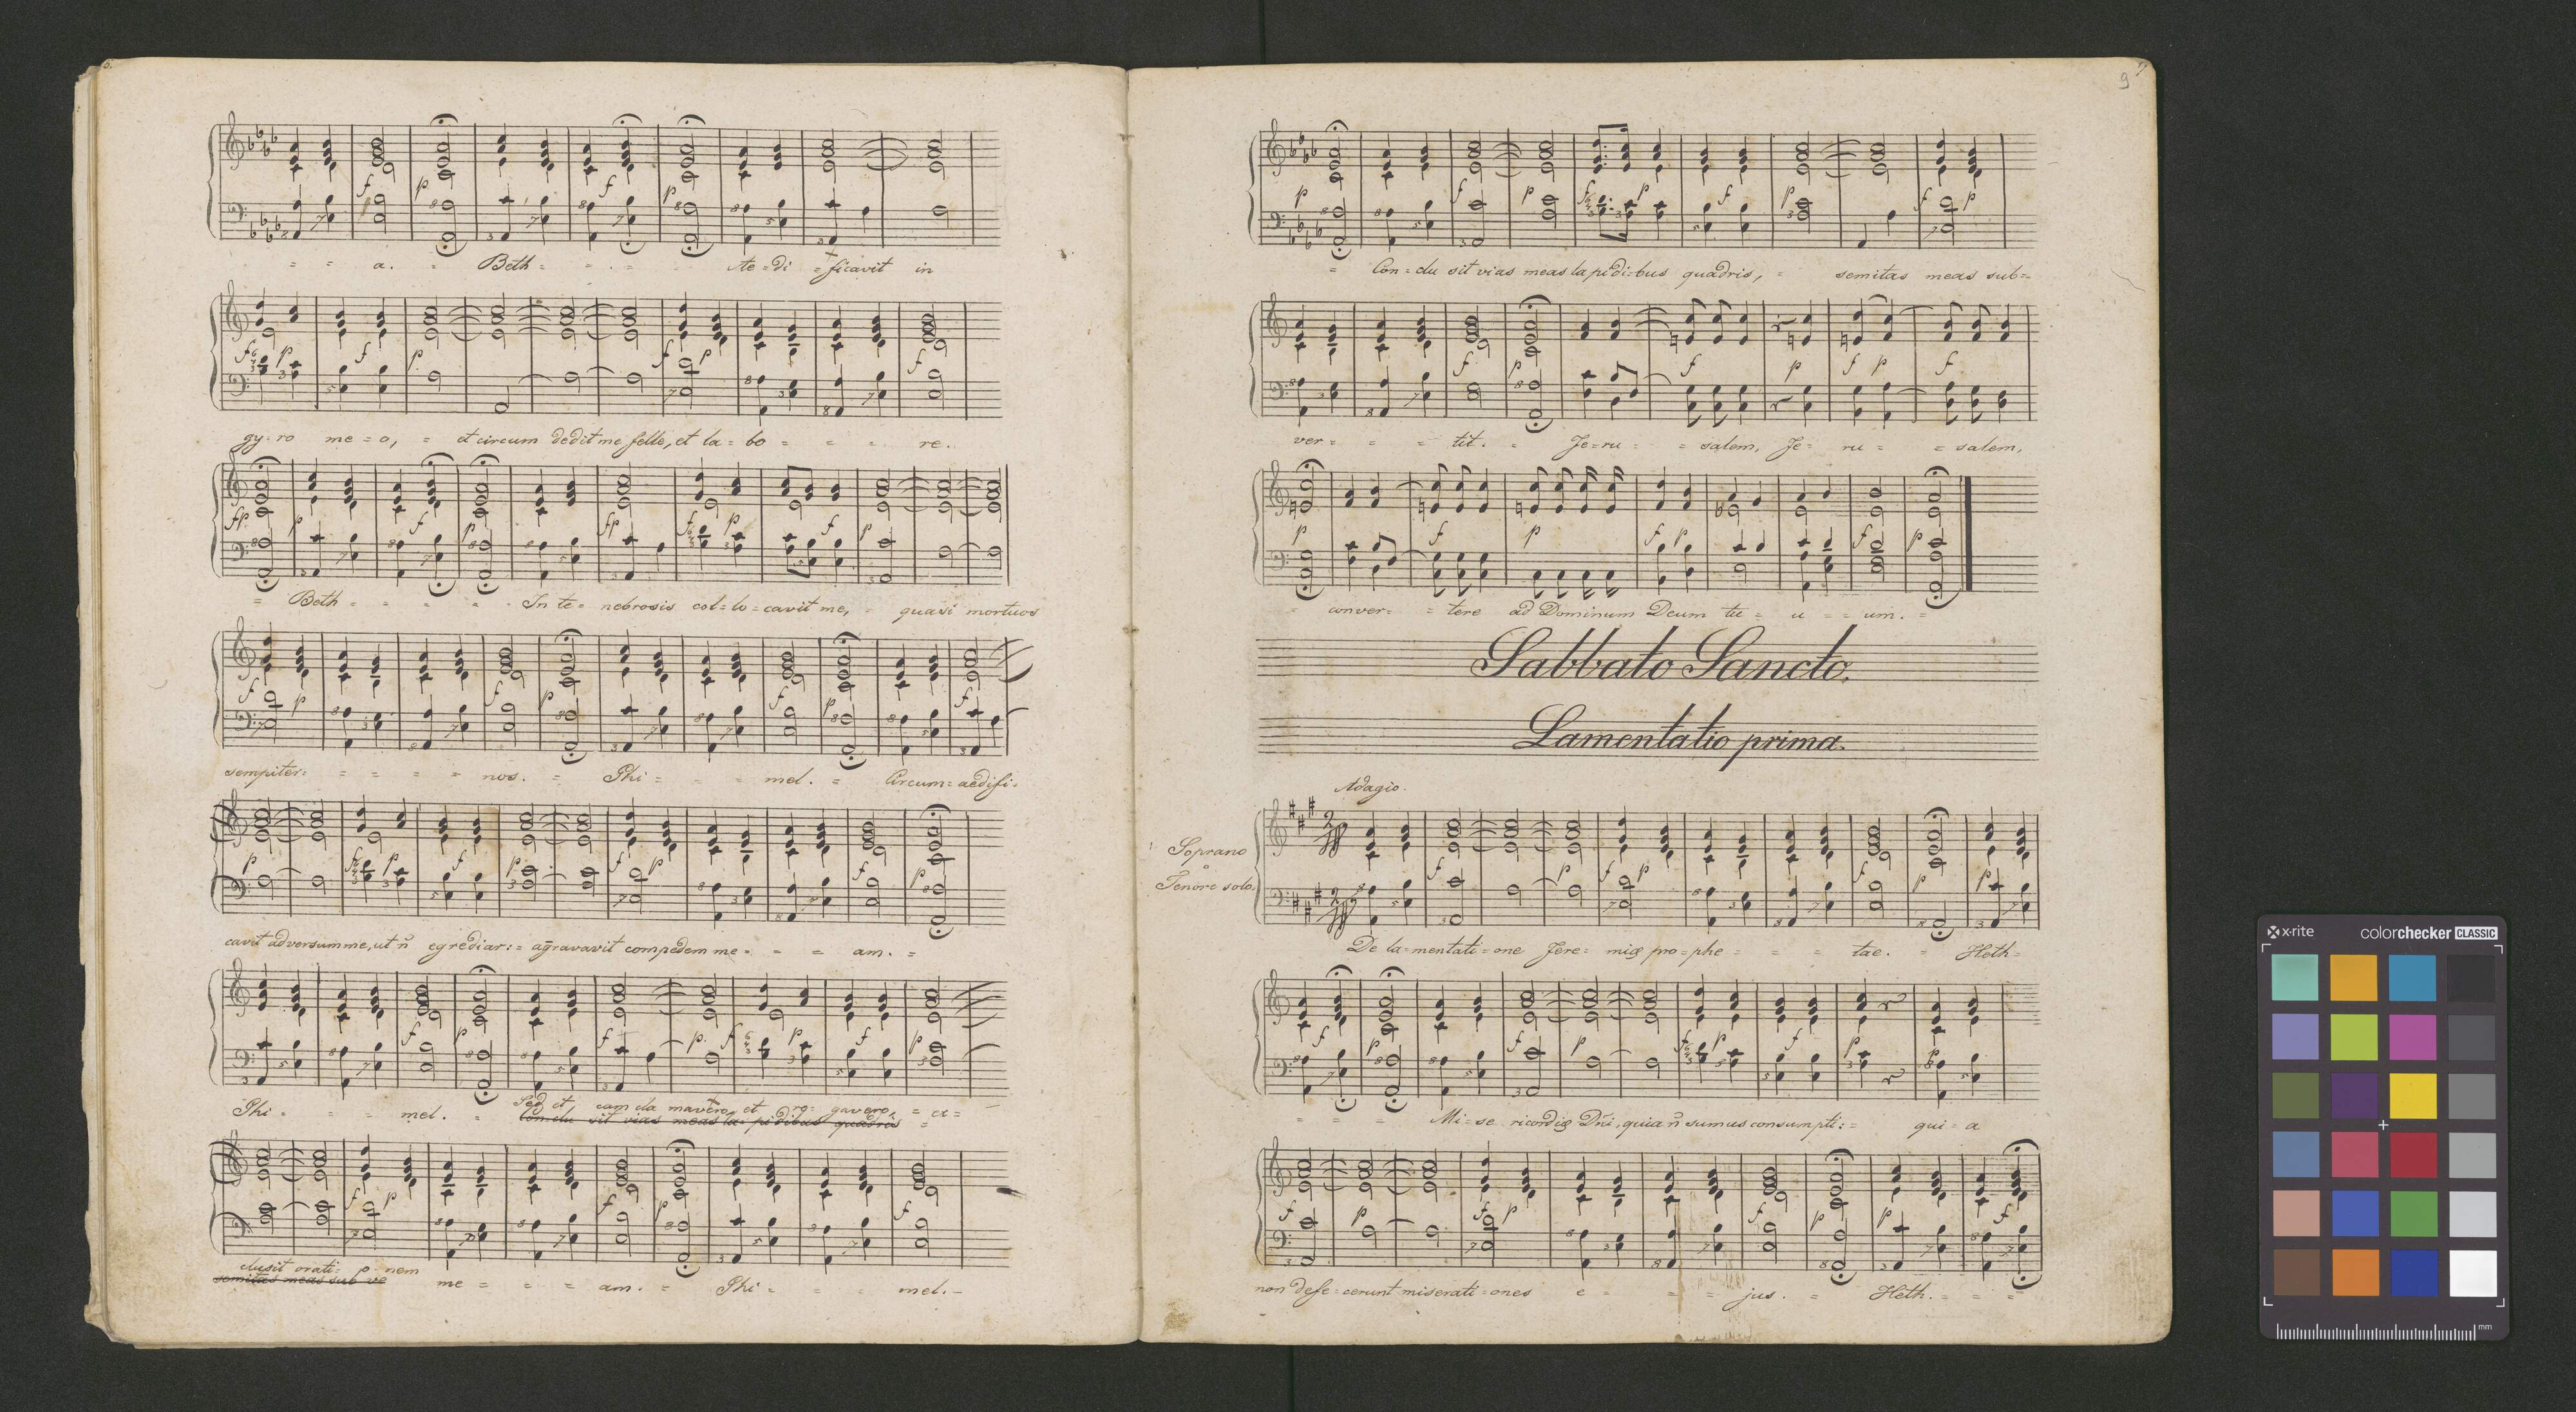 = = a. = Beth = - . - te = di = ficavit in
gy = ro me = o, = et circum dedit me felle, et la = bo = = = re.
= Beth = = = = = In te = nebrosis col = lo = cavit me, = quasi mortuos
sempiter: = = = = nos. = Ghi = = = mel. = Circum = aedifi =
cavit adversum me, ut n̄ egrediar: = aḡravavit compedem me = = = am. =
Ghi = = = mel. = Sed et cum cla mavero, et ro = gavero = ex =
Conclu sit vias meas la = pidibus quadris =
clusit orati = o nem
semitas meas sub ve
me = = = am. = Ghi = = = mel. =
9
= Con = clu sit vias meas lapidi = bus quadris, = semitas meas sub =
ver = = = tit. = Je = ru = = salem, Je = ru = = salem,
= conver = = tere ad Dominum Deum tu = u = = um. =
Sabbato Sancto.
Lamentatio prima.
Adagio.
Soprano
o
Tenore solo.
De la = mentati = one Jere = miȩ pro = phe = = = tae. = Heth =
= = = Mi = se ricordiȩ Dn̄i, quia n̄ sumus consumpti: = qui = a
non defe = cerunt miserati = ones e = = = jus. = Heth. = = =
x-rite colorchecker CLASSIC
mm